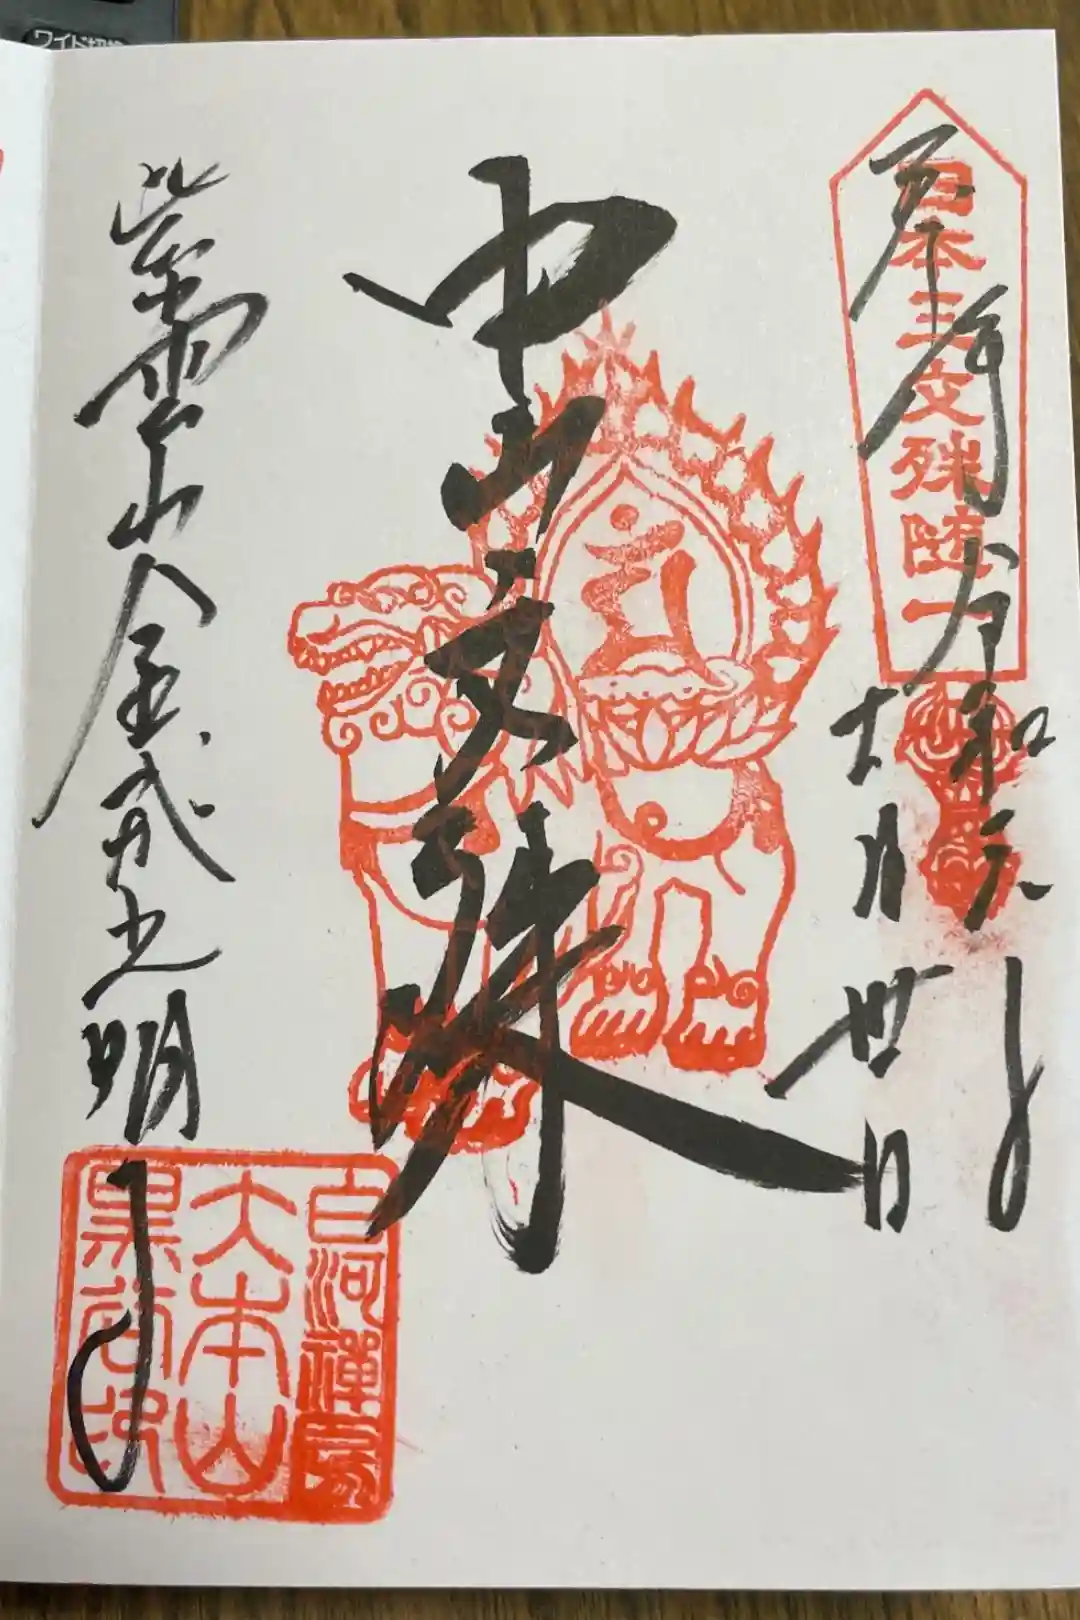 日本三文殊随一
奉拝 令和元年
月 日
中山文殊
紫雲山金戒光明寺
白河禪房
大本山
黒谷印
ワイド切換